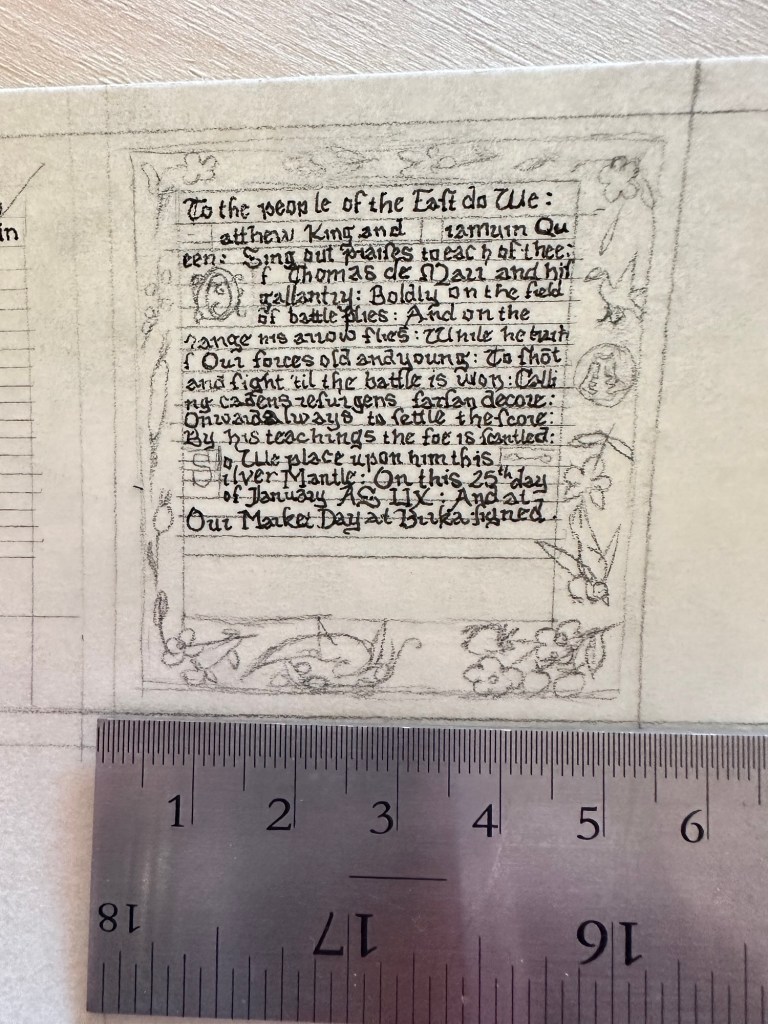 in
To the people of the Eaſt do We:
atthew King and iamuin Qu
een: Sing out praiſes to each of thee:
f Thomas de Marr and hiſ
gallantry: Boldly on the field
of battle plies: And on the
range his arrow flies: While he train
ſ Our forces old and young: To ſhot
and fight 'til the battle is won: Calli
ng cadens reſurgens
Onwards always to ſettle the ſcore:
By his teachings the foe is ſcantled:
S
o, We place upon him this
ilver Mantle: On this 25th day
of January AS LIX: And at
Our Market Day at Birka ſigned.
1 2 3 4 5 6
18 17 16